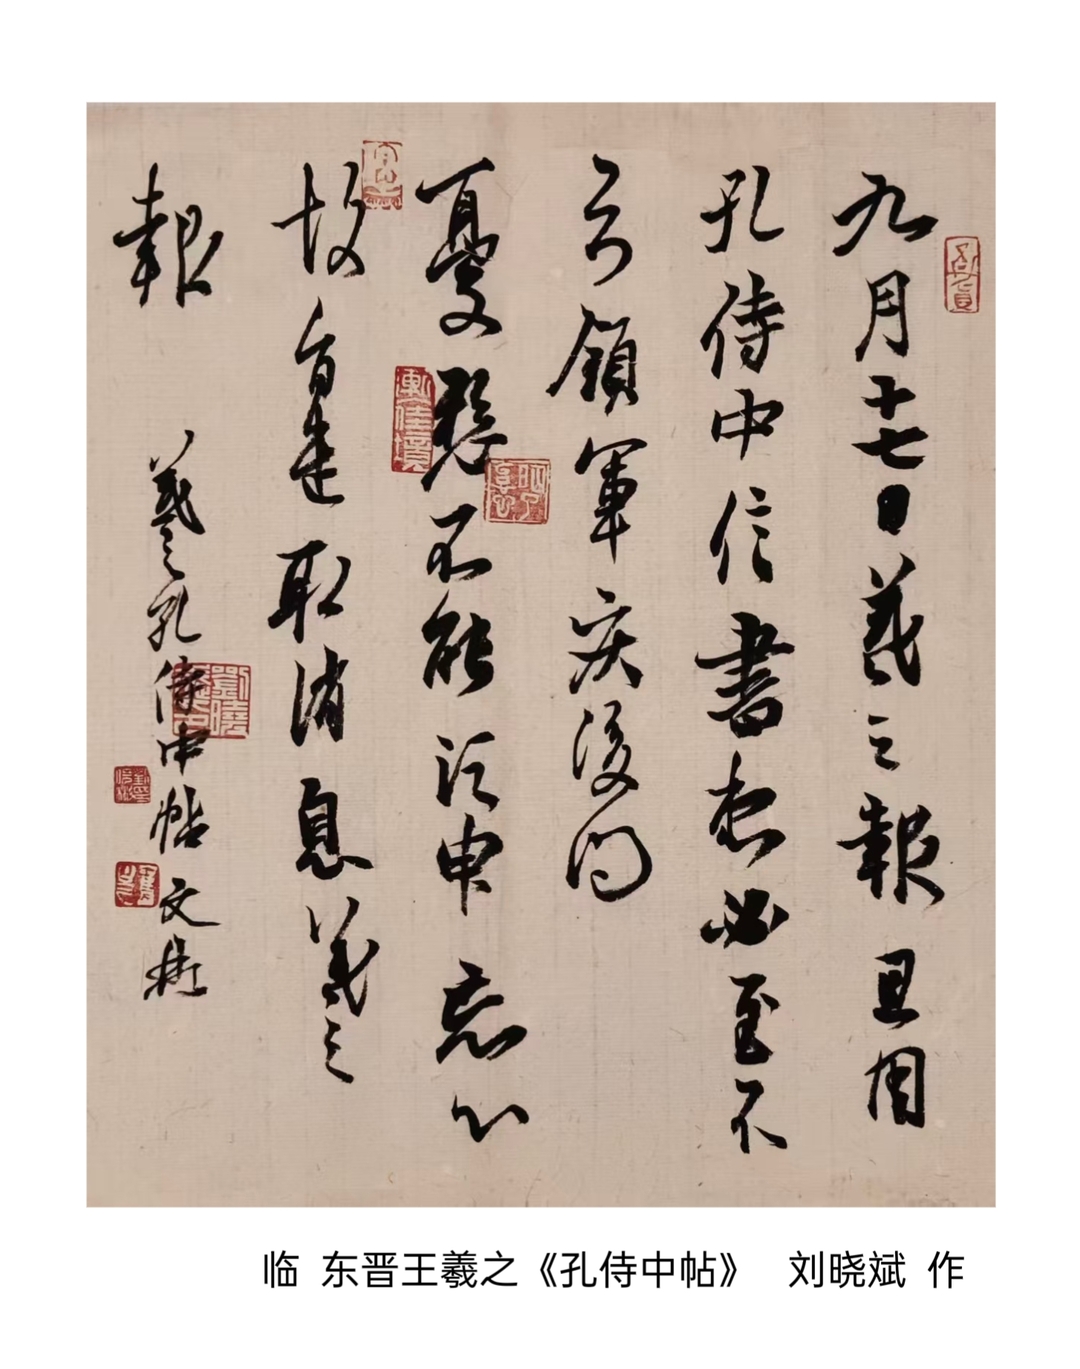 九月十七日羲之報且因
孔侍中信書想必至不
知領軍疾後問
憂懸不能須臾忘心
故旨遣取消息羲之
報
羲之孔侍中帖 文
漸佳境
临 东晋王羲之《孔侍中帖》 刘晓斌 作